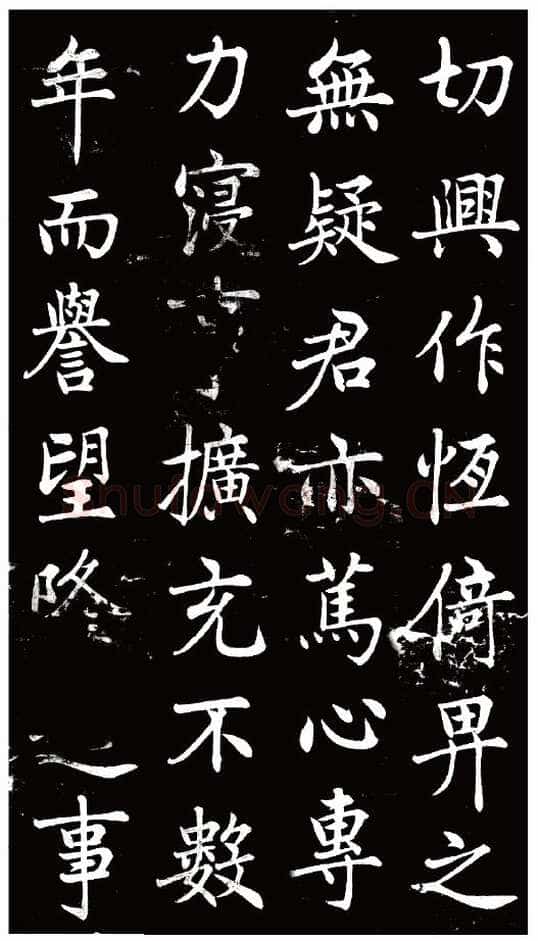 切興作恆倚畀之
無疑君亦篤心專
力寖擴充不數
年而譽望隆事